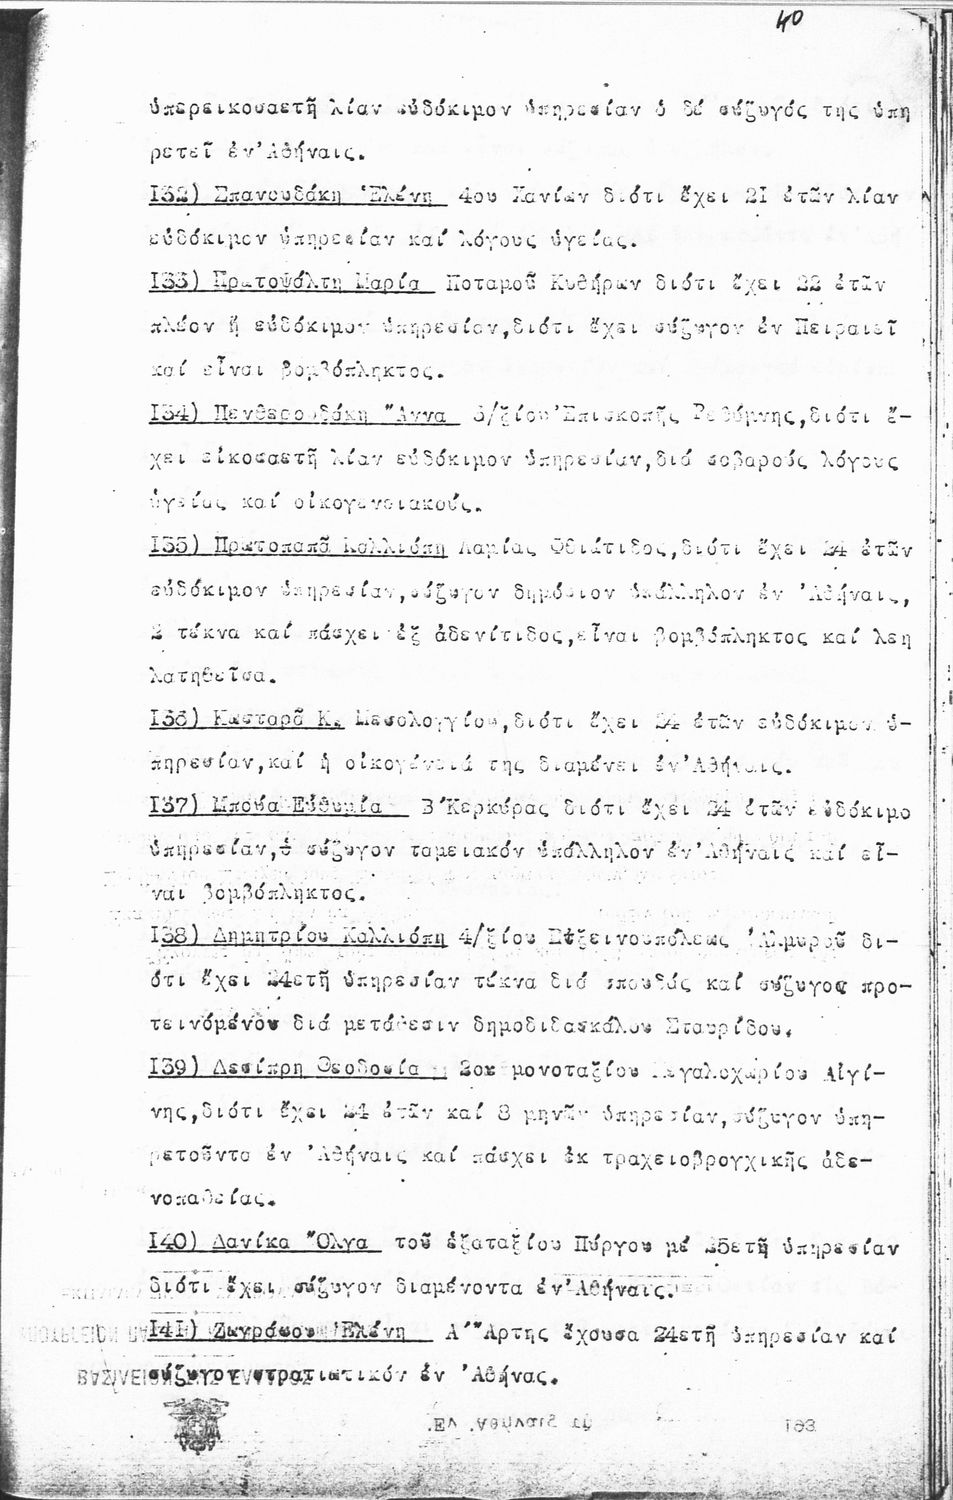 40
ὑπερεικοσαετῆ λίαν εὐδόκιμον ὑπηρεσίαν ὁ δέ σύζυγός της ὑπη
ρετεῖ ἐν'Ἀθήναις.
I32) Σπανουδάκη Ἑλένη 4ου Χανίων διότι ἔχει 2I ἐτῶν λίαν
εὐδόκιμον ὑπηρεσίαν καί λόγους ὑγείας.
I33) Πρωτοψάλτη Μαρία Ποταμοῦ Κυθήρων διότι ἔχει 22 ἐτῶν
πλέον ἤ εὐδόκιμον ὑπηρεσίαν,διότι ἔχει σύζυγον ἐν Πειραιεῖ
καί εἶναι βομβόπληκτος.
I34) Πενθερουδάκη Ἄννα 3/ξίου Ἐπισκοπῆς Ρεθύμνης,διότι ἔ-
χει εἰκοσαετῆ λίαν εὐδόκιμον ὑπηρεσίαν,διά σοβαρούς λόγους
ὑγείας καί οἰκογενειακούς.
I35) Πρωτοπαπᾶ Καλλιόπη Λαμίας Φθιώτιδος,διότι ἔχει 24 ἐτῶν
εὐδόκιμον ὑπηρεσίαν,σύζυγον δημόσιον ὑπάλληλον ἐν Ἀθήναις,
2 τέκνα καί πάσχει ἐξ ἀδενίτιδος,εἶναι βομβόπληκτος καί λεη
λατηθεῖσα.
I36) Κωσταρᾶ Κ. Μεσολογγίου,διότι ἔχει 24 ἐτῶν εὐδόκιμον ὑ-
πηρεσίαν,καί ἡ οἰκογένειά της διαμένει ἐν'Ἀθήναις.
I37) Μπούα Εὐθυμία Β'Κερκύρας διότι ἔχει 24 ἐτῶν εὐδόκιμο
ὑπηρεσίαν, σύζυγον ταμειακόν ὑπάλληλον ἐν'Ἀθήναις καί εἶ-
ναι βομβόπληκτος.
I38) Δημητρίου Καλλιόπη 4/ξίου Εὐξεινουπόλεως Ἁλμυροῦ δι-
ότι ἔχει 24ετῆ ὑπηρεσίαν τέκνα διά σπουδάς καί σύζυγος προ-
τεινόμένου διά μετάθεσιν δημοδιδασκάλου Σταυρίδου.
I39) Δεσίπρη Θεοδοσία 2ου μονοταξίου Μεγαλοχωρίου Αἰγί-
νης,διότι ἔχει 24 ἐτῶν καί 8 μηνῶν ὑπηρεσίαν,σύζυγον ὑπη-
ρετοῦντα ἐν Ἀθήναις καί πάσχει ἐκ τραχειοβρογχικῆς ἀδε-
νοπαθείας.
I40) Δανίκα Ὄλγα τοῦ ἑξαταξίου Πύργου μέ 25ετῆ ὑπηρεσίαν
διότι ἔχει σύζυγον διαμένοντα ἐν'Ἀθήναις.
I4I) Ζωγράφου Ἑλένη Α'Ἄρτης ἔχουσα 24ετῆ ὑπηρεσίαν καί
σύζυγον στρατιωτικόν ἐν Ἀθήνας.